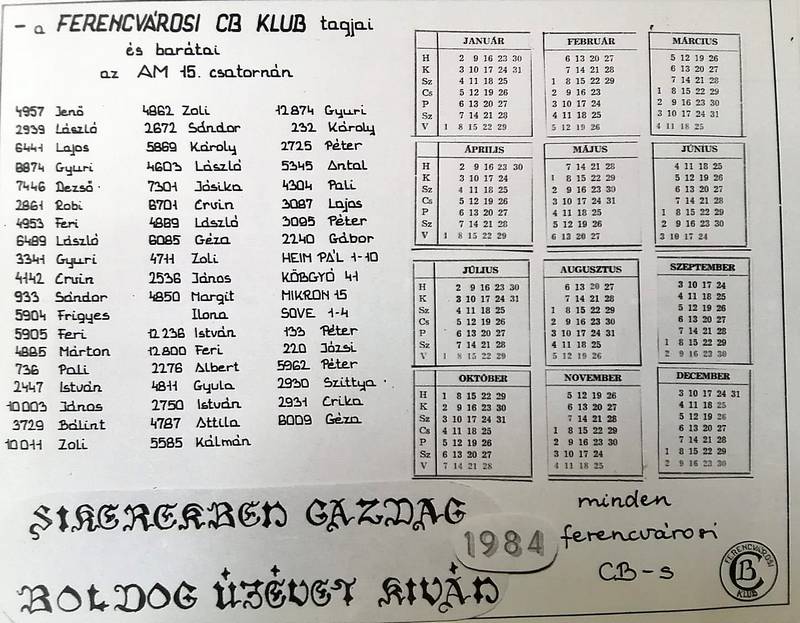 - a FERENCVÁROSI CB KLUB tagjai
és barátai
az AM 15. csatornán
4957 Jenő
2939 László
6441 Lajos
8874 Gyuri
7446 Dezső
2861 Robi
4953 Feri
6489 László
3341 Gyuri
4142 Ervin
933 Sándor
5904 Frigyes
5905 Feri
4885 Márton
736 Pali
2447 István
10003 János
3729 Bálint
10011 Zoli
4862 Zoli
2672 Sándor
5869 Károly
4603 László
7301 Jósika
6701 Ervin
4889 László
6085 Géza
4711 Zoli
2536 János
4850 Margit
Ilona
12236 István
12800 Feri
2276 Albert
4811 Gyula
2750 István
4787 Attila
5585 Kálmán
12874 Gyuri
232 Károly
2725 Péter
5345 Antal
4304 Pali
3087 Lajos
3085 Péter
2240 Gábor
HEIM PÁL 1-10
KÖBGYÓ 41
MIKRON 15
SOVE 1-4
133 Péter
220 Józsi
5962 Péter
2930 Szittya
2931 Erika
6009 Géza
JANUÁR
H 2 9 16 23 30
K 3 10 17 24 31
Sz 4 11 18 25
Cs 5 12 19 26
P 6 13 20 27
Sz 7 14 21 28
V 1 8 15 22 29
FEBRUÁR
6 13 20 27
7 14 21 28
1 8 15 22 29
2 9 16 23
3 10 17 24
4 11 18 25
5 12 19 26
MÁRCIUS
5 12 19 26
6 13 20 27
7 14 21 28
1 8 15 22 29
2 9 16 23 30
3 10 17 24 31
4 11 18 25
ÁPRILIS
H 2 9 16 23 30
K 3 10 17 24
Sz 4 11 18 25
Cs 5 12 19 26
P 6 13 20 27
Sz 7 14 21 28
V 1 8 15 22 29
MÁJUS
7 14 21 28
1 8 15 22 29
2 9 16 23 30
3 10 17 24 31
4 11 18 25
5 12 19 26
6 13 20 27
JÚNIUS
4 11 18 25
5 12 19 26
6 13 20 27
7 14 21 28
1 8 15 22 29
2 9 16 23 30
3 10 17 24
JÚLIUS
H 2 9 16 23 30
K 3 10 17 24 31
Sz 4 11 18 25
Cs 5 12 19 26
P 6 13 20 27
Sz 7 14 21 28
V 1 8 15 22 29
AUGUSZTUS
6 13 20 27
7 14 21 28
1 8 15 22 29
2 9 16 23 30
3 10 17 24 31
4 11 18 25
5 12 19 26
SZEPTEMBER
3 10 17 24
4 11 18 25
5 12 19 26
6 13 20 27
7 14 21 28
1 8 15 22 29
2 9 16 23 30
OKTÓBER
H 1 8 15 22 29
K 2 9 16 23 30
Sz 3 10 17 24 31
Cs 4 11 18 25
P 5 12 19 26
Sz 6 13 20 27
V 7 14 21 28
NOVEMBER
5 12 19 26
6 13 20 27
7 14 21 28
1 8 15 22 29
2 9 16 23 30
3 10 17 24
4 11 18 25
DECEMBER
3 10 17 24 31
4 11 18 25
5 12 19 26
6 13 20 27
7 14 21 28
1 8 15 22 29
2 9 16 23 30
SIKEREKBEN GAZDAG
1984
BOLDOG ÚJÉVET KIVÁN
minden
ferencvárosi
CB-s
FERENCVÁROSI
CB
KLUB